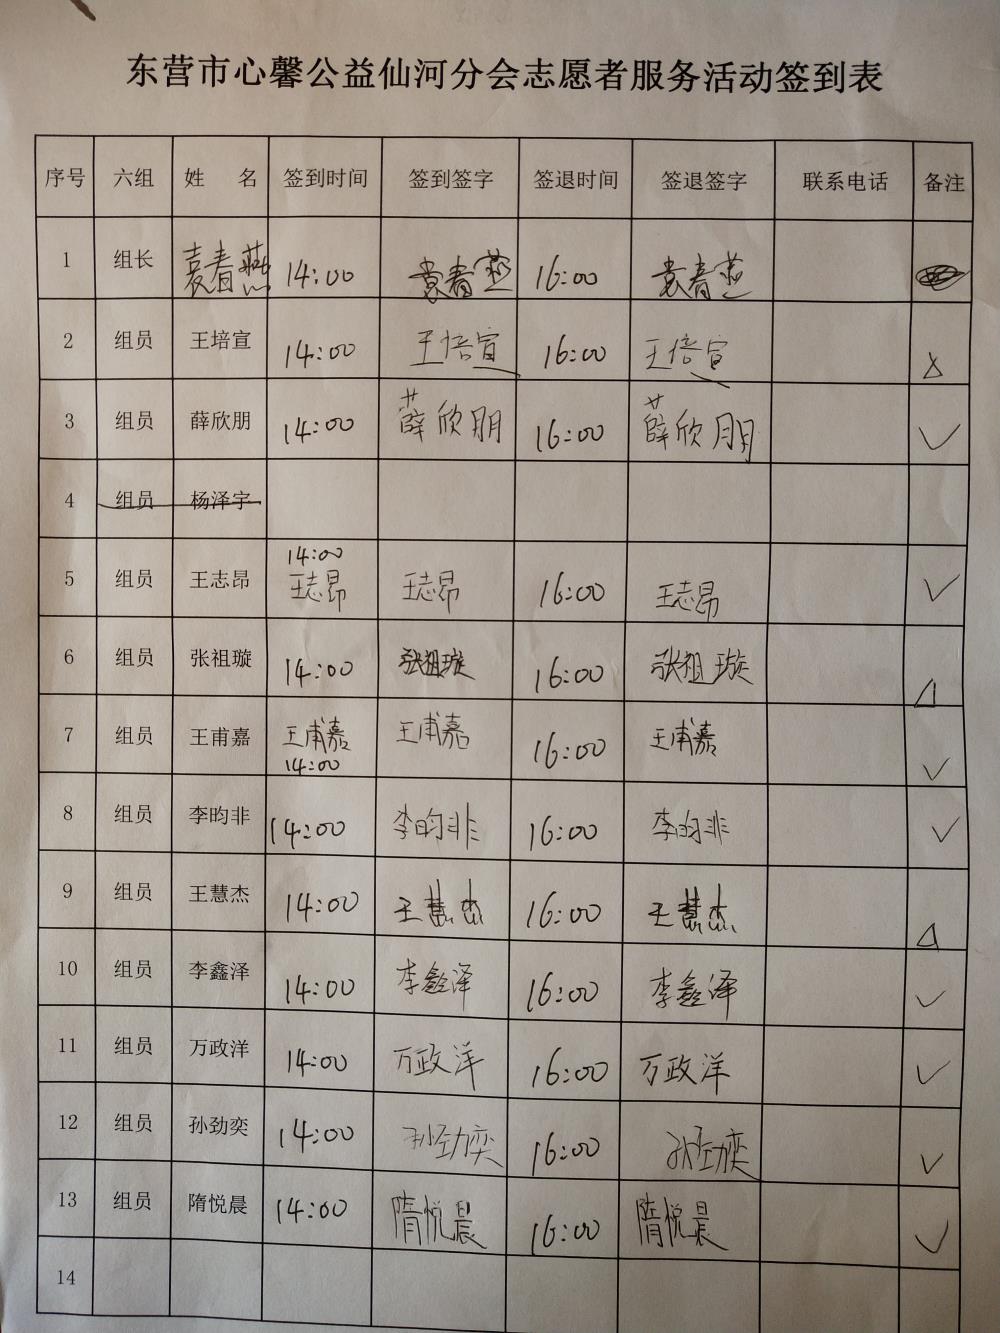 东营市心馨公益仙河分会志愿者服务活动签到表
序号 六组 姓 名 签到时间 签到签字 签退时间 签退签字 联系电话 备注
1 组长 袁春燕 14:00 袁春燕 16:00 袁春燕
2 组员 王培宣 14:00 王培宣 16:00 王培宣
3 组员 薛欣朋 14:00 薛欣朋 16:00 薛欣朋 ✓
4 组员 杨泽宇
5 组员 王志昂 14:00 王志昂 王志昂 16:00 王志昂 ✓
6 组员 张祖璇 14:00 张祖璇 16:00 张祖璇 △
7 组员 王甫嘉 王甫嘉 14:00 王甫嘉 16:00 王甫嘉 ✓
8 组员 李昀非 14:00 李昀非 16:00 李昀非 ✓
9 组员 王慧杰 14:00 王慧杰 16:00 王慧杰 △
10 组员 李鑫泽 14:00 李鑫泽 16:00 李鑫泽 ✓
11 组员 万政洋 14:00 万政洋 16:00 万政洋 ✓
12 组员 孙劲奕 14:00 孙劲奕 16:00 孙劲奕 ✓
13 组员 隋悦晨 14:00 隋悦晨 16:00 隋悦晨 ✓
14